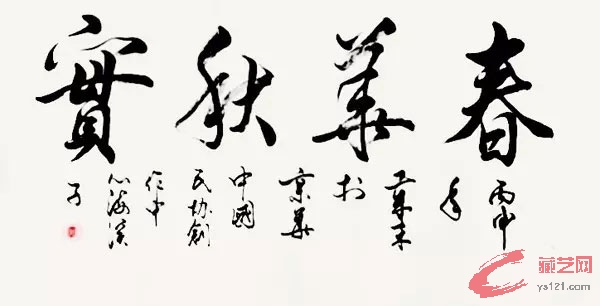 春華秋實
丙申
年
於
京華
中國
民协創
作中
心海溪
子
藏艺网
ys121.com